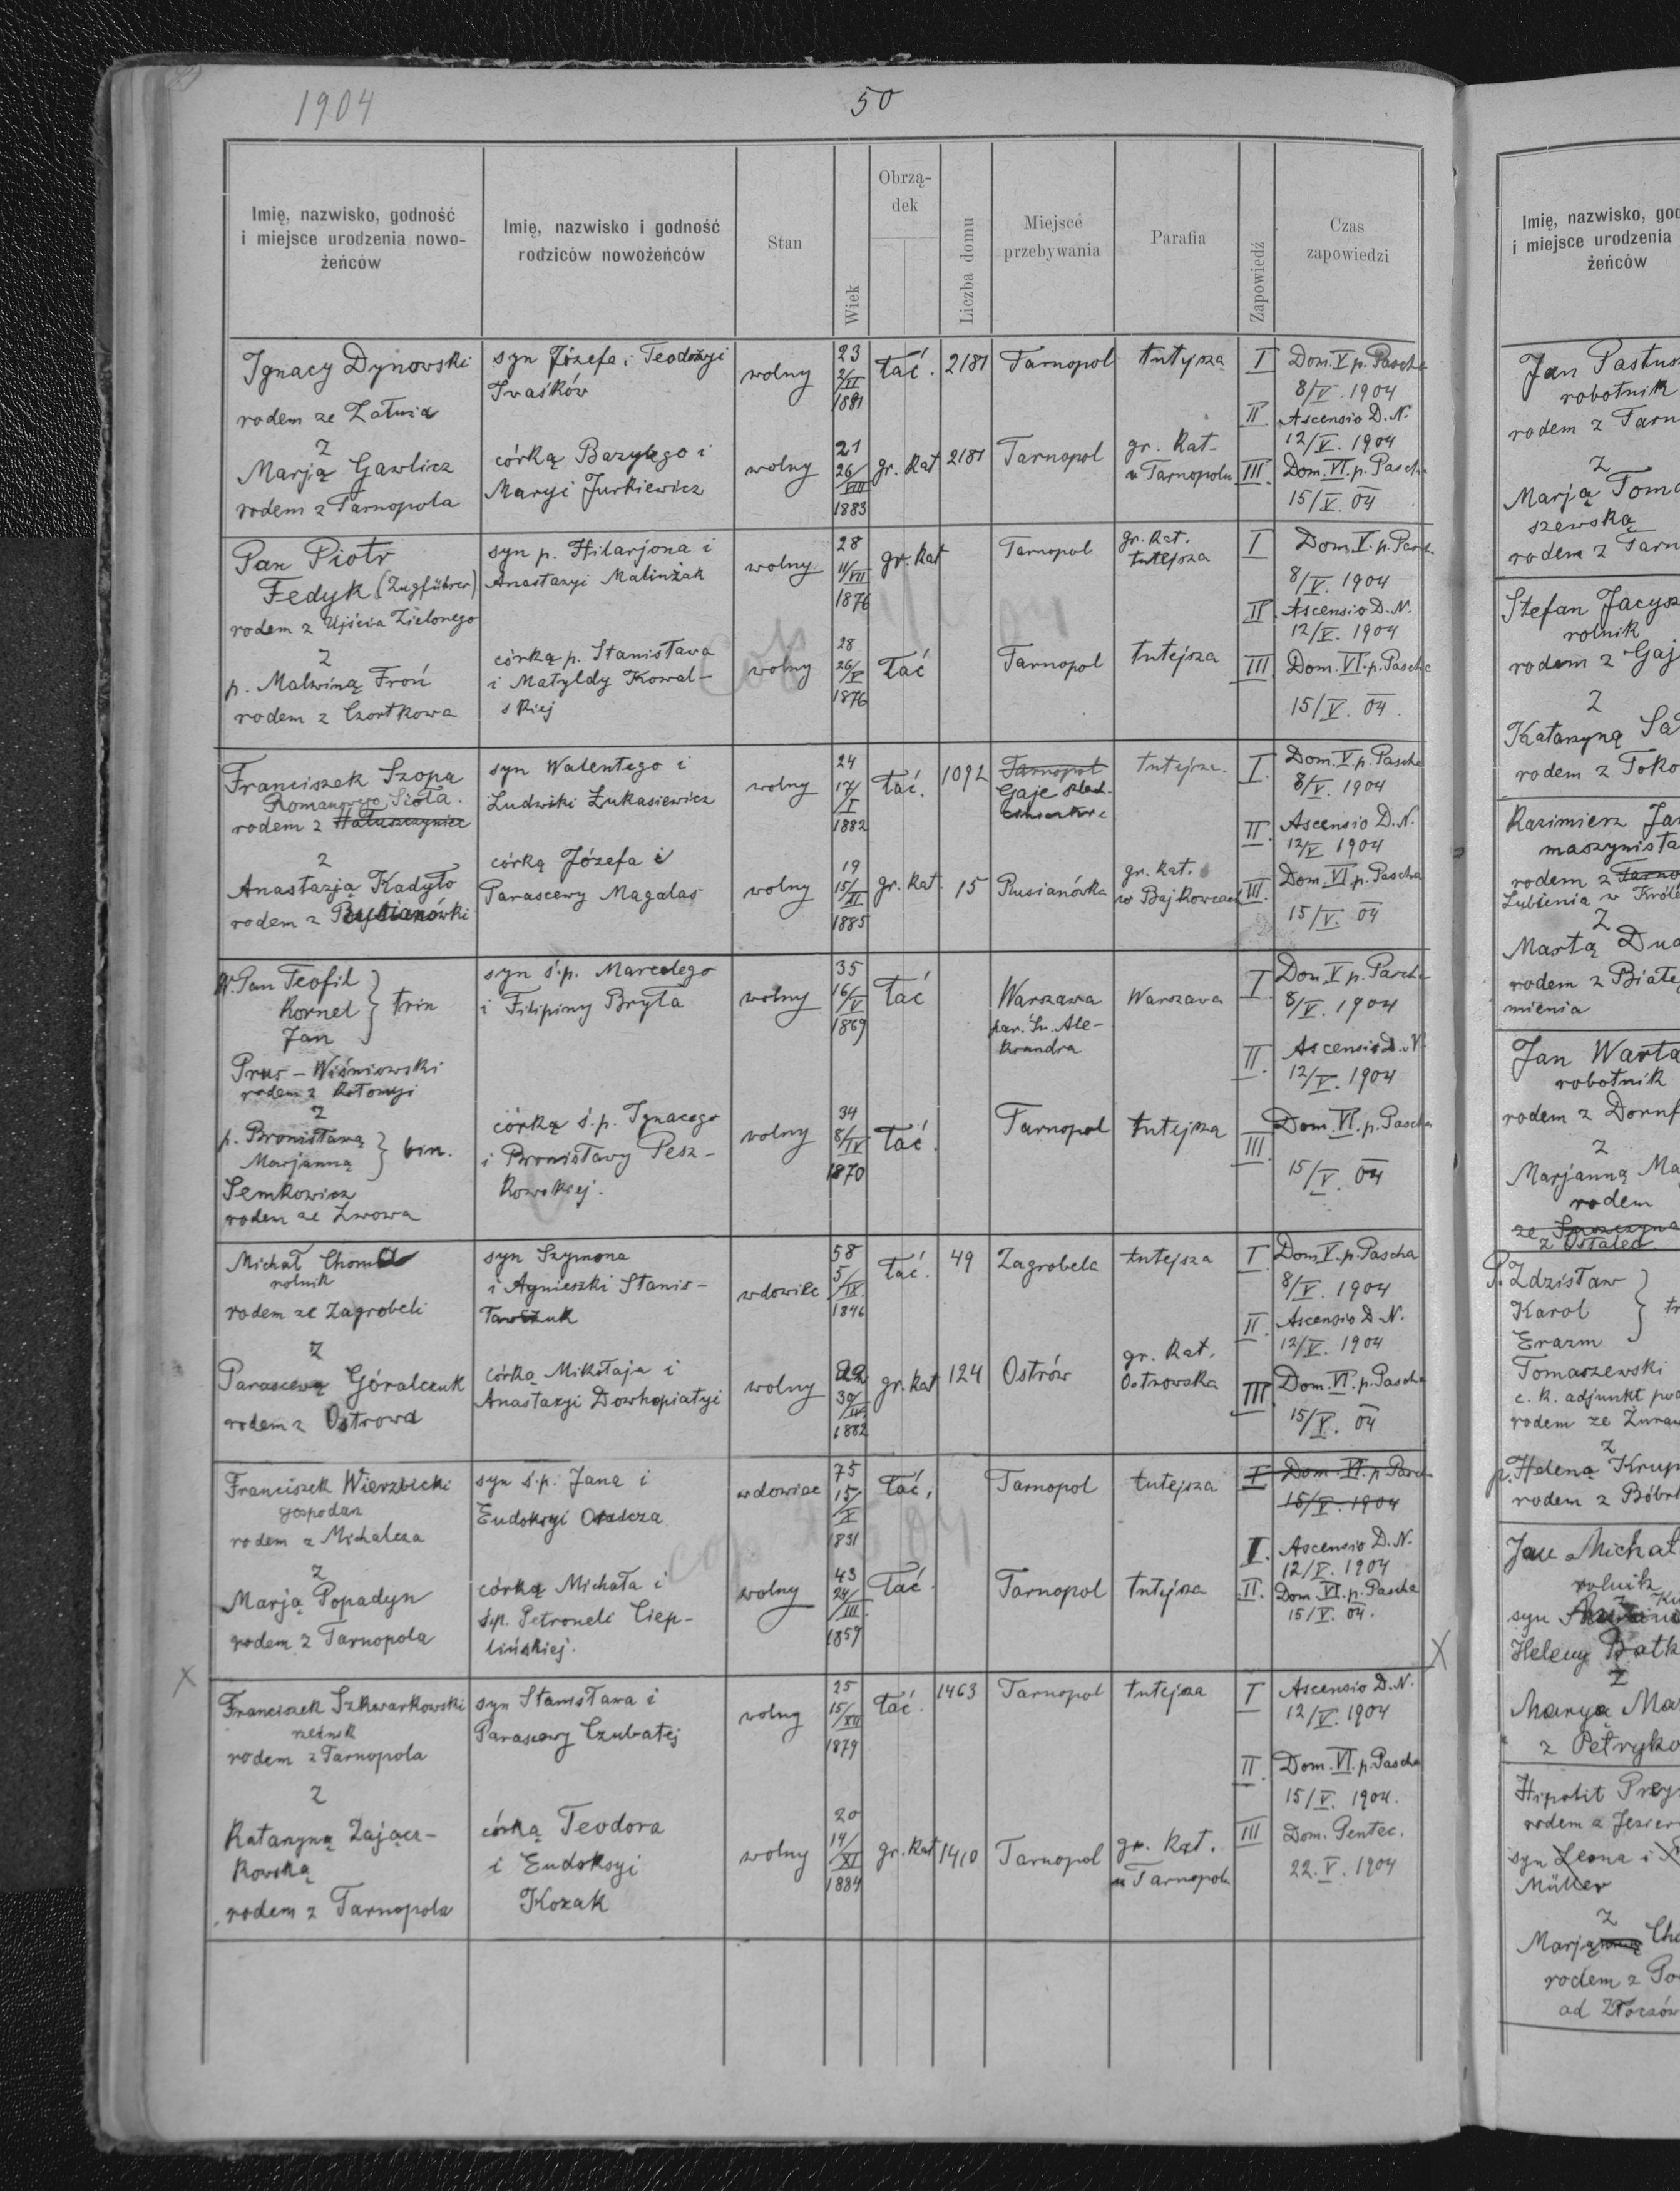 1904
50
Imię, nazwisko, godność
i miejsce urodzenia nowo-
żeńców
Imię, nazwisko i godność
rodziców nowożeńców
Stan
Wiek
Obrzą-
dek
Liczba domu
Miejsce
przebywania
Parafia
Zapowiedź
Czas
zapowiedzi
Ignacy Dynowski
rodem ze
z
Marją Gawlicz
rodem z Tarnopola
syn Józefa i Teodozyi
Iwaśków
córką Bazylego i
Maryi Jurkiewicz
wolny
wolny
23
2/VI
1881
21
26/VIII
1883
łać.
gr. kat
2181
2181
Tarnopol
Tarnopol
tutejsza
gr. kat.
w Tarnopolu
I
II
III
Dom. V p. Pascha
8/V. 1904
Ascensio D. N.
12/V. 1904
Dom. VI. p. Pascha
15/V. 04
Pan Piotr
Fedyk (Zugführer)
rodem z Ujścia Zielonego
z
p. Malwiną Froń
rodem z Czortkowa
syn p. Hilarjona i
Anastazyi Malinżak
córką p. Stanisława
i Matyldy Kowal-
skiej
wolny
wolny
28
11/VII
1876
28
26/V
1876
gr. kat
łać
Tarnopol
Tarnopol
gr. kat.
tutejsza
tutejsza
I
II.
III
Dom. V. p. Pascha
8/V. 1904
Ascensio D. N.
12/V. 1904
Dom. VI. p. Pascha
15/V. 04.
Franciszek Szopa
Romanowego Sioła.
rodem z Hałuszczyniec
z
Anastazja Kadyło
rodem z
syn Walentego i
Ludwiki Łukasiewicz
córką Józefa i
Parascewy Magalas
wolny
wolny
24
17/I
1882
19
15/XI
1885
łać.
gr. kat.
1092
15
Tarnopol
Gaje
Rusianówka
tutejsza.
gr. kat.
w Bajkowcach
I.
II.
III.
Dom. V. p. Pascha
8/V. 1904
Ascensio D. N.
12/V 1904
Dom. VI. p. Pascha
15/V. 04
W. Pan Teofil
Kornel } trin
Jan
Prus - Wiśniowski
rodem z Kołomyi
z
p. Bronisławą
Marjanną } bin.
Semkowicz
rodem ze Lwowa
syn ś.p. Marcelego
i Filipiny Bryła
córką ś.p. Ignacego
i Bronisławy Pesz-
kowskiej.
wolny
wolny
35
16/V
1869
34
8/IV
1870
łać
łać.
Warszawa
par. Św. Ale-
ksandra
Tarnopol
Warszawa
tutejsza
I.
II.
III.
Dom V p. Pascha
8/V. 1904
Ascensio D. N.
12/V. 1904
Dom. VI. p. Pascha
15/V. 04
Michał Choma
rolnik
rodem ze Zagrobeli
z
Parascewą Góralczuk
rodem z Ostrowa
syn Szymona
i Agnieszki Stanis-
ławczuk
córką Mikołaja i
Anastazyi Dowhopiatyi
wdowiec
wolny
58
5/IX.
1846
22
1882
łać.
gr. kat
49
124
Zagrobela
Ostrów
tutejsza
gr. kat.
Ostrowska
I
II
III
Dom V. p. Pascha
8/V. 1904
Ascensio D. N.
12/V. 1904
Dom. VI. p. Pascha
15/V. 04
Franciszek Wierzbicki
gospodarz
rodem z Michalcza
z
Marją Popadyn
rodem z Tarnopola
syn ś.p. Jana i
Eudoksyi
córką Michała i
ś.p. Petroneli Ciep-
lińskiej.
wdowiec
wolny
75
15/X
1831
43
24/III.
1859
łać.
łać.
Tarnopol
Tarnopol
tutejsza
tutejsza
I
I.
II.
Dom. VI. p. Pascha
15/V. 1904
Ascensio D. N.
12/V. 1904
Dom. VI. p. Pascha
15/V. 04.
X
X
Franciszek Szkwarkowski
rzeźnik
rodem z Tarnopola
z
Katarzyną Zającz-
kowską
rodem z Tarnopola
syn Stanisława i
Parascewy Czubatej
córką Teodora
i Eudoksyi
Kozak
wolny
wolny
25
15/XII
1879
20
14/XI
1884
łać.
gr. kat
1463
1410
Tarnopol
Tarnopol
tutejsza
gr. kat.
w Tarnopolu
I
II.
III
Ascensio D. N.
12/V. 1904
Dom. VI. p. Pascha
15/V. 1904.
Dom. Pentec.
22. V. 1904
Imię, nazwisko, god
i miejsce urodzenia
żeńców
Jan
robotnik
rodem z Tarn
z
Marją Toma
szewską
rodem z Tarn
Stefan Jacysz
rolnik
rodem z Gaj
z
Katarzyną Sa
rodem z Toko
Kazimierz Ja
maszynista
rodem z Tarno
z
Martą Dud
rodem z Białe
mienia
Jan Warta
robotnik
rodem z Dornf
z
Marjanną Ma
rodem
P. Zdzisław
Karol
Erazm
Tomaszewski
c. k. adjunkt
rodem ze Żuraw
z
p. Helena Krup
rodem z Bóbr
Jan Michał
rolnik
syn
Heleny
z
Maryą Ma
z Petryko
Hipolit
rodem z Jezier
syn Leona i
Müller
z
Marją
rodem z
ad Złoczów